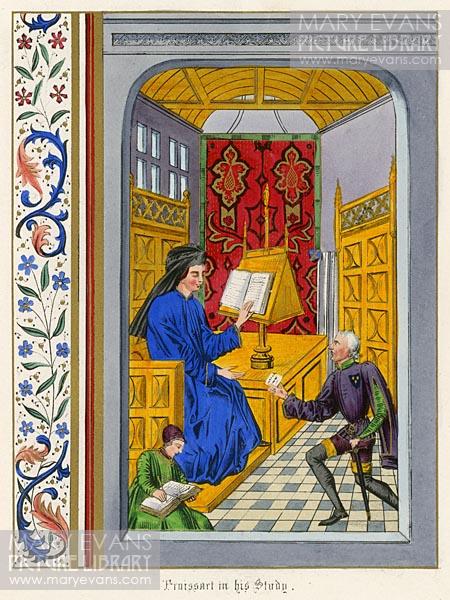 MARY EVANS
PICTURE LIBRARY
www.maryevans.com
MARY EVANS
PICTURE LIBRARY
www.maryevans.com
Froissart in his Study.